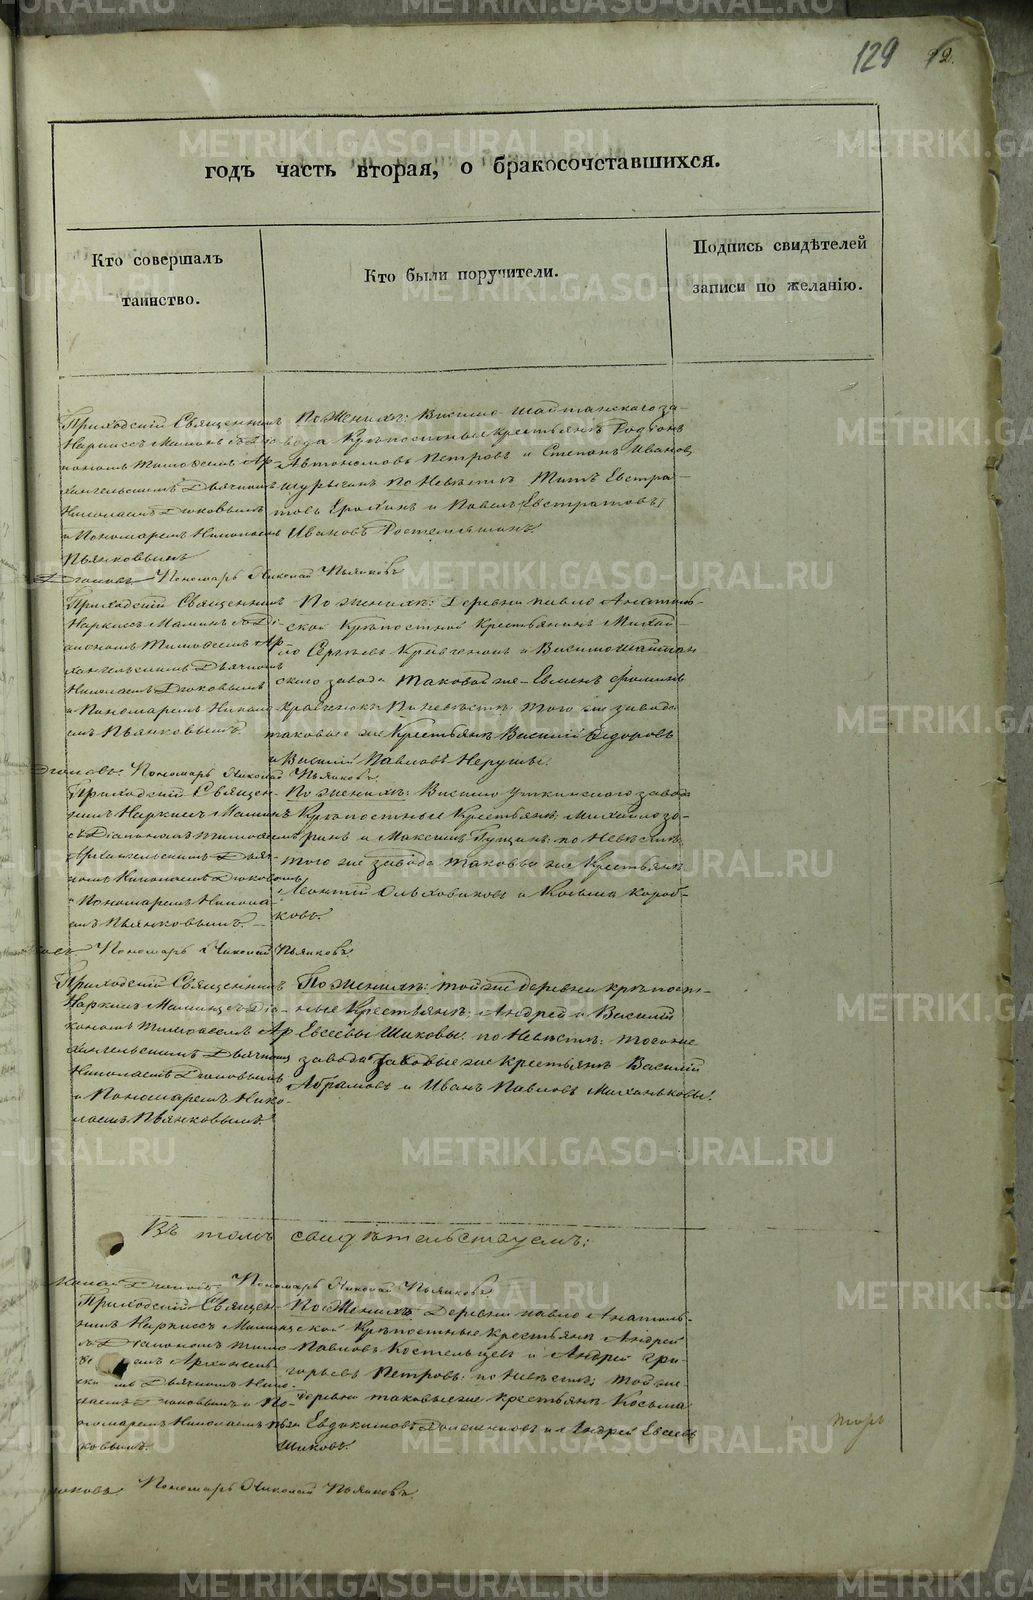 129
годъ часть вторая, о бракосочетавшихся.
Кто совершалъ
таинство.
Кто были поручители.
Подпись свидѣтелей
записи по желанію.
Приходскій Священникъ
Наркисъ Маминъ съ Діа
кономъ Тимоѳеемъ Ар
хангельскимъ Дьячкомъ
Николаемъ Дюковымъ
и Пономаремъ Николаемъ
Пьянковымъ
По Женихѣ: Висимо Шайтанскаго за-
вода Крѣпостные крестьянъ Родіонъ
Автономовъ Петровъ и Степанъ Ивановъ
по Невѣстѣ Титъ Евстра-
товъ Ерохинъ и Павелъ Евстратовъ
Ивановъ
Дюковъ Пономарь Николай Пьянковъ
Приходскій Священникъ
Наркисъ Маминъ съ Ді-
акономъ Тимоѳеемъ Ар-
хангельскимъ Дьячкомъ
Николаемъ Дюковымъ
и Пономаремъ Никола
емъ Пьянковымъ.
По женихѣ: Деревни Павло Анатоль-
ской Крѣпостной Крестьянинъ Михай-
ло Сергѣевъ Кравченокъ и Висимо Шайтан
скаго завода таковой же Евмен
Кравченокъ По невѣстѣ: того же завода
таковые же Крестьянъ Василій Ѳедоровъ
и Василій Павловъ Нерушы.
Дюковъ. Пономарь Николай Пьянковъ
Приходскій Священ-
никъ Наркисъ Маминъ
съ Діакономъ Тимоѳеемъ
Архангельскимъ Дьяч-
комъ Николаемъ Дюковымъ
и Пономаремъ Никола-
емъ Пьянковымъ.
По женихѣ: Висимо Уткинскаго завода
Крѣпостные Крестьянъ: Михайло
и Максимъ по Невѣстѣ:
того же завода таковы же Крестьянъ
Леонтій Ольховиковъ и Косьма Короб-
ковъ.
Пономарь Николай Пьянковъ
Приходскій Священникъ
Наркисъ Маминъ съ Діа-
кономъ Тимоѳеемъ Ар
хангельскимъ Дьячкомъ
Николаемъ Дюковымъ
и Пономаремъ Нико-
лаемъ Пьянковымъ.
По Женихѣ: той же деревни крѣпост-
ные Крестьянъ: Андрей и Василій
Евсеевы Шиковы. по Невѣстѣ: того же
завода таковые же крестьянъ Василій
Абрамовъ и Иванъ Павловъ Миханьковы.
Въ томъ свидѣтельствуемъ:
Пономарь Николай Пьянковъ
Приходскій Священ-
никъ Наркисъ Маминъ
съ Діакономъ Тимо
Архангель-
Дьячкомъ Нико-
лаемъ Дюковымъ и По-
номаремъ Николаемъ Пьян
ковымъ.
По Женихѣ Деревни Павло Анатоль-
ской Крѣпостные крестьянъ Андрей
Павловъ Костельцевъ и Андрей Гри-
горьевъ Петровъ: по Невѣстѣ: той же
деревни таковые же крестьянъ Косьма
Евдокимовъ и Андрей Евсеевъ
Шиковъ.
Пономарь Николай Пьянковъ.
METRIKI.GASO-URAL.RU